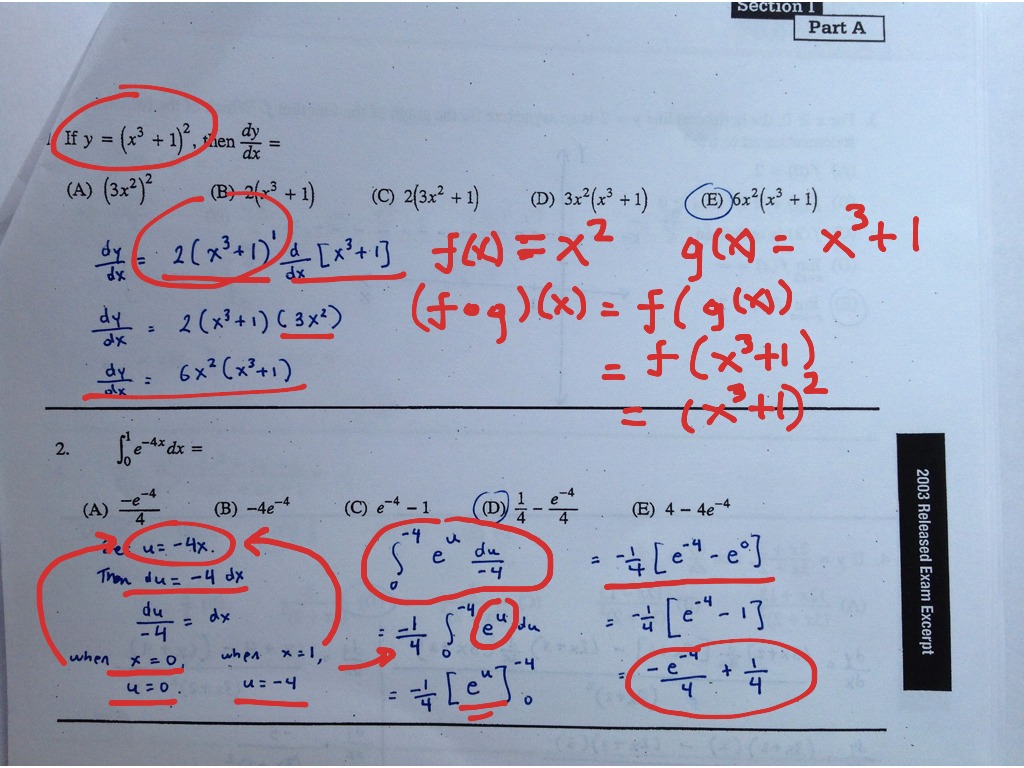 Section I
Part A
1. If y = (x³ + 1)², then dy/dx =
(A) (3x²)² (B) 2(x³ + 1) (C) 2(3x² + 1) (D) 3x²(x³ + 1) (E) 6x²(x³ + 1)
dy/dx = 2(x³+1)¹ d/dx [x³+1]
dy/dx = 2(x³+1)(3x²)
dy/dx = 6x²(x³+1)
f(x) = x² g(x) = x³+1
(f∘g)(x) = f(g(x))
= f(x³+1)
= (x³+1)²
2. ∫₀¹ e^(-4x) dx =
(A) -e⁻⁴/4 (B) -4e⁻⁴ (C) e⁻⁴ - 1 (D) 1/4 - e⁻⁴/4 (E) 4 - 4e⁻⁴
u = -4x.
Then du = -4 dx
du/-4 = dx
when x = 0, when x = 1,
u = 0. u = -4
∫₀⁻⁴ e^u du/-4
= -1/4 ∫₀⁻⁴ e^u du
= -1/4 [e^u]₀⁻⁴
= -1/4 [e⁻⁴ - e⁰]
= -1/4 [e⁻⁴ - 1]
= -e⁻⁴/4 + 1/4
2003 Released Exam Excerpt